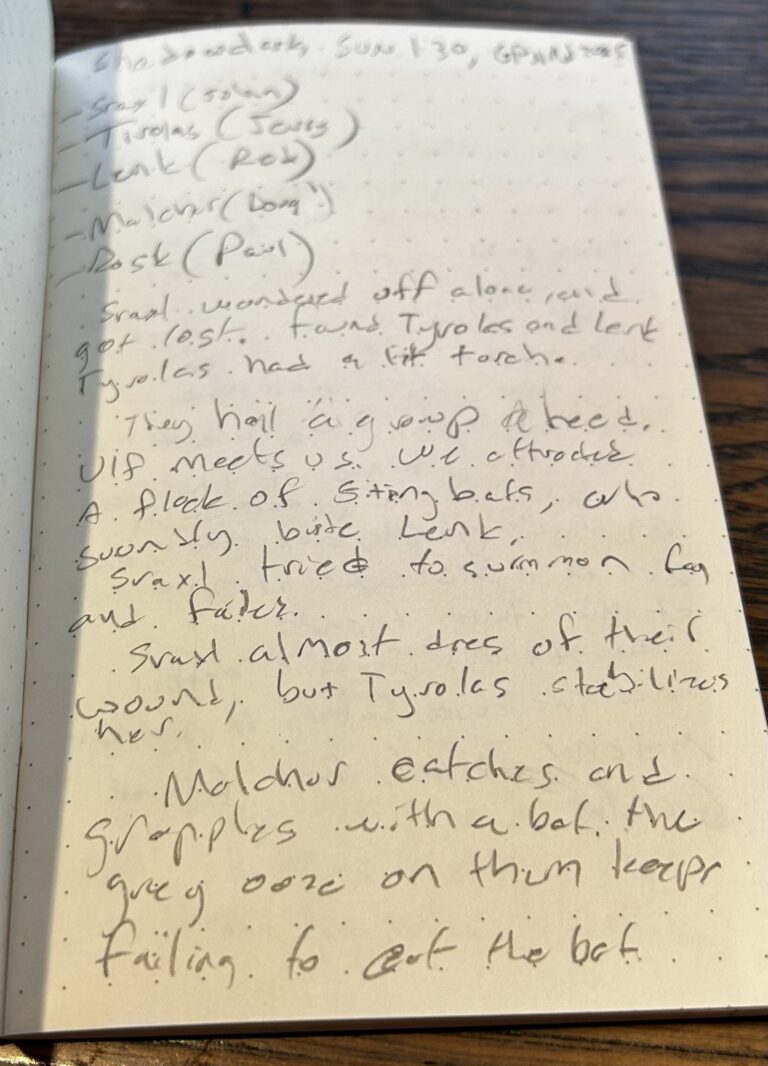 Shadowdark, Sun 1:30,
- Sraxl (Jolan)
- Tirolas (Jerry)
- Lenk (Rob)
- Malchor (Doug)
- Rosk (Paul)
Sraxl wandered off alone, and
got lost. Found Tyrolas and Lenk
Tyrolas had a lit torch.
They hail a group ahead.
Ulf meets us. We attracted
A flock of Stingbats, who
soundly bite Lenk.
Sraxl tried to summon fog
and failed.
Sraxl almost dies of their
wound, but Tyrolas stabilizes
her.
Malchor catches and
grapples with a bat. the
grey ooze on them keeps
failing to eat the bat